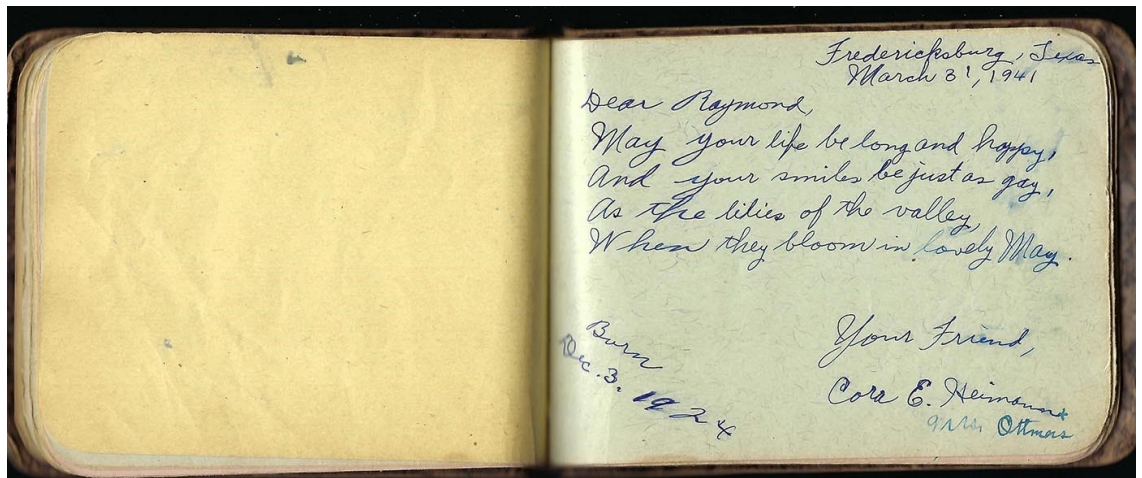 Fredericksburg, Texas
March 31, 1941
Dear Raymond,
May your life be long and happy,
And your smiles be just as gay,
As the lilies of the valley,
When they bloom in lovely May.
Your Friend,
Cora E. Heimann
Mrs. Ottmers
Born
Dec. 3. 1924